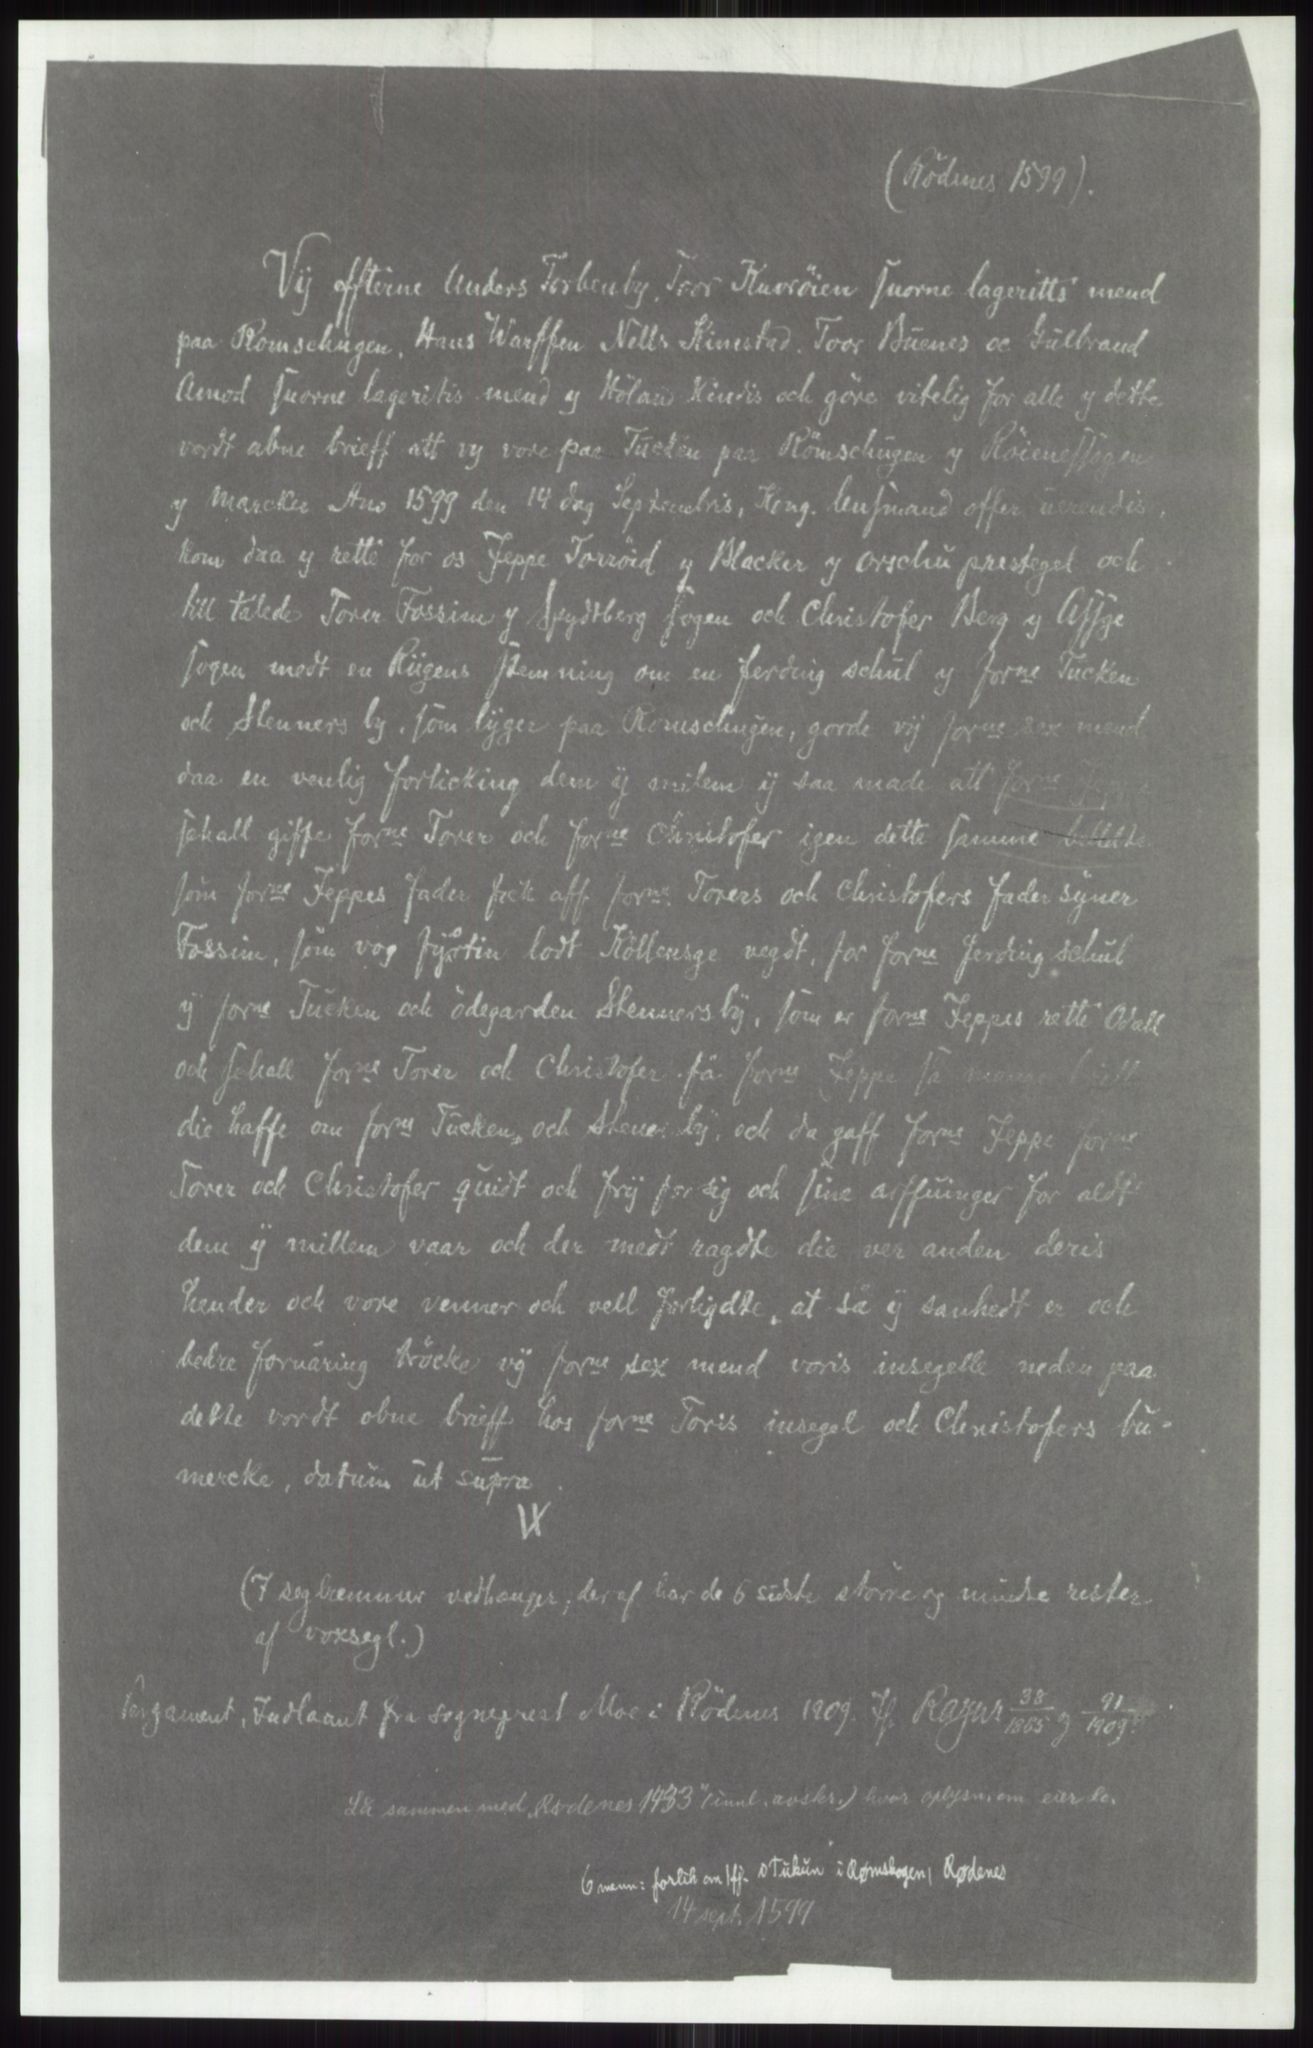 (Rödenes 1599).
Vÿ effterne Anders Torbenby, Toor Kuvröien suorne lageritts mend
paa Romschugen, Hans Warffven Nells Kinestad. Toor Buenes oc Gulbrand
Amod suorne lageritis mend y Hölan Kindis och göre vitelig for alle y dette
vordt abne brieff att vy vore paa Tucken paa Römschugen y Röienessogen
y Marcker Ano 1599 den 14 dag Septembris, Kong. lensmand offer uerendis,
kom daa y rette for os Jeppe Torröid y Blacker y Orschu prestegel och
till talede Torer Fossim y Spydtberg sogen och Christofer Berg y Assge
sogen medt en Rügens stemning om en ferding schul y forne Tucken
och Stenners by, som lÿger paa Romschugen, gorde vÿ forne sex mend
daa en venlig forlicking dem ÿ milem ÿ saa made att forne Jeppe
schall giffe forne Torer och forne Christofer igen dette samme
som forne Jeppes fader fick aff forne Torers och Christofers fader syner
Fossim, som vog fÿrtin lodt Köllensge vegdt, for forne ferding schul
ÿ forne Tucken och ödegarden Stennersbÿ, som er forne Jeppes rette Odell
och schall forne Torer och Christofer få forne Jeppe så mange
die haffe om forne Tucken, och Stenersbÿ, och da gaff forne Jeppe forne
Torer och Christofer quidt och frÿ for sig och sine arffuinger for aldt
dem ÿ millem vaar och der medt ragdte die ver anden deris
hender och vore venner och vell forligdte, at så ÿ sanhedt er och
bedre forvåring tröcke vÿ forne sex mend voris insegelle neden paa
dette vordt obne brieff hos forne Toris insegel och Christofers bu-
mercke, datum ut supra
(7 segl remmer vedhænger, der af har de 6 sidste större og mindre rester
af voxsegl.)
Pergament, Indlaant fra sogneprest Moe i Rödenes 1909. Jf. 38/1865 og 91/1909
Lå sammen med "Rødenes 1433" (innl. avskr.) hvor oplysn. om eier do.
6 menn: forlik om jfj. i Tukun i Rømskogen, Rødenes
14 sept. 1599